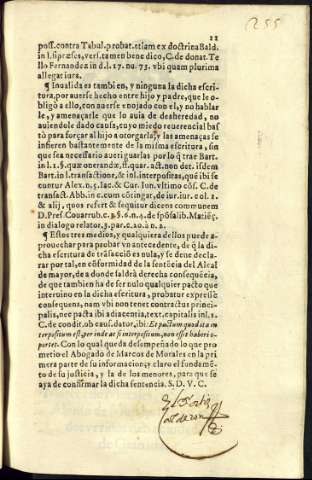 255
22
poss. contra Tabul. probat. etiam ex doctrina Bald.
in l. si præses, vers. tamen bene dico, C. de donat. Te
llo Fernandez in d. l. 17. nu. 73. vbi quam plurima
allegat iura.
¶ Inualida es tambien, y ninguna la dicha escri-
tura, por auerse hecho entre hijo y padre, que le o-
bligò a ello, con auerse enojado con el, y no hablar
le, y amenaçarle que lo auia de desheredar, no
auiendole dado causa, cuyo miedo reuerencial bas
tò para forçar al hijo a otorgarla, y las amenaças se
infieren bastantemente de la misma escritura, sin
que sea necessario aueriguarlas por lo q̃ trae Bart.
in l. 2. §. quæ onerandæ, ff. quar. act. non det. & isdem
Bart. in l. transactione, & in l. interpositas, que ibi se
cuntur Alex. n. 5. Iac. & Cur. Iun. vltimo cõs. C. de
transact. Abb. in c. cum cõtingat, de iur. iur. col. 2.
& alij, quos refert & sequitur dicens communem
D. Pres. Couarrub. c. 3. §. 6. n. 4. de spõsalib. Matiẽç.
in dialogo relator. 3. par. c. 20. à n. 2.
¶ Estos tres medios, y qualquiera dellos puede a-
prouechar para probar vn antecedente, de q̃ la di-
cha escritura de trãsacciõ es nula, y se deue decla-
rar por tal, en cõformidad de la sentẽcia del Alcal
de mayor, de a donde saldrà derecha consequẽcia,
de que tambien ha de ser nulo qualquier pacto que
interuino en la dicha escritura, probatur expresse
consequens, nam vbi non tenet contractus princi-
palis, nec pacta ibi adiacentia, text. capitalis in l. 2.
C. de condit. ob caus. dator, ibi: Et pactum quod ita in
terpositum est, perinde ac si interpositum, non esset haberi o-
portet. Con lo qual queda desempeñado lo que pro
metio el Abogado de Marcos de Morales en la pri
mera parte de su informacion, y claro el fundamẽ-
to de su justicia, y la de los menores, para que se
aya de confirmar la dicha sentencia. S. D. V. C.